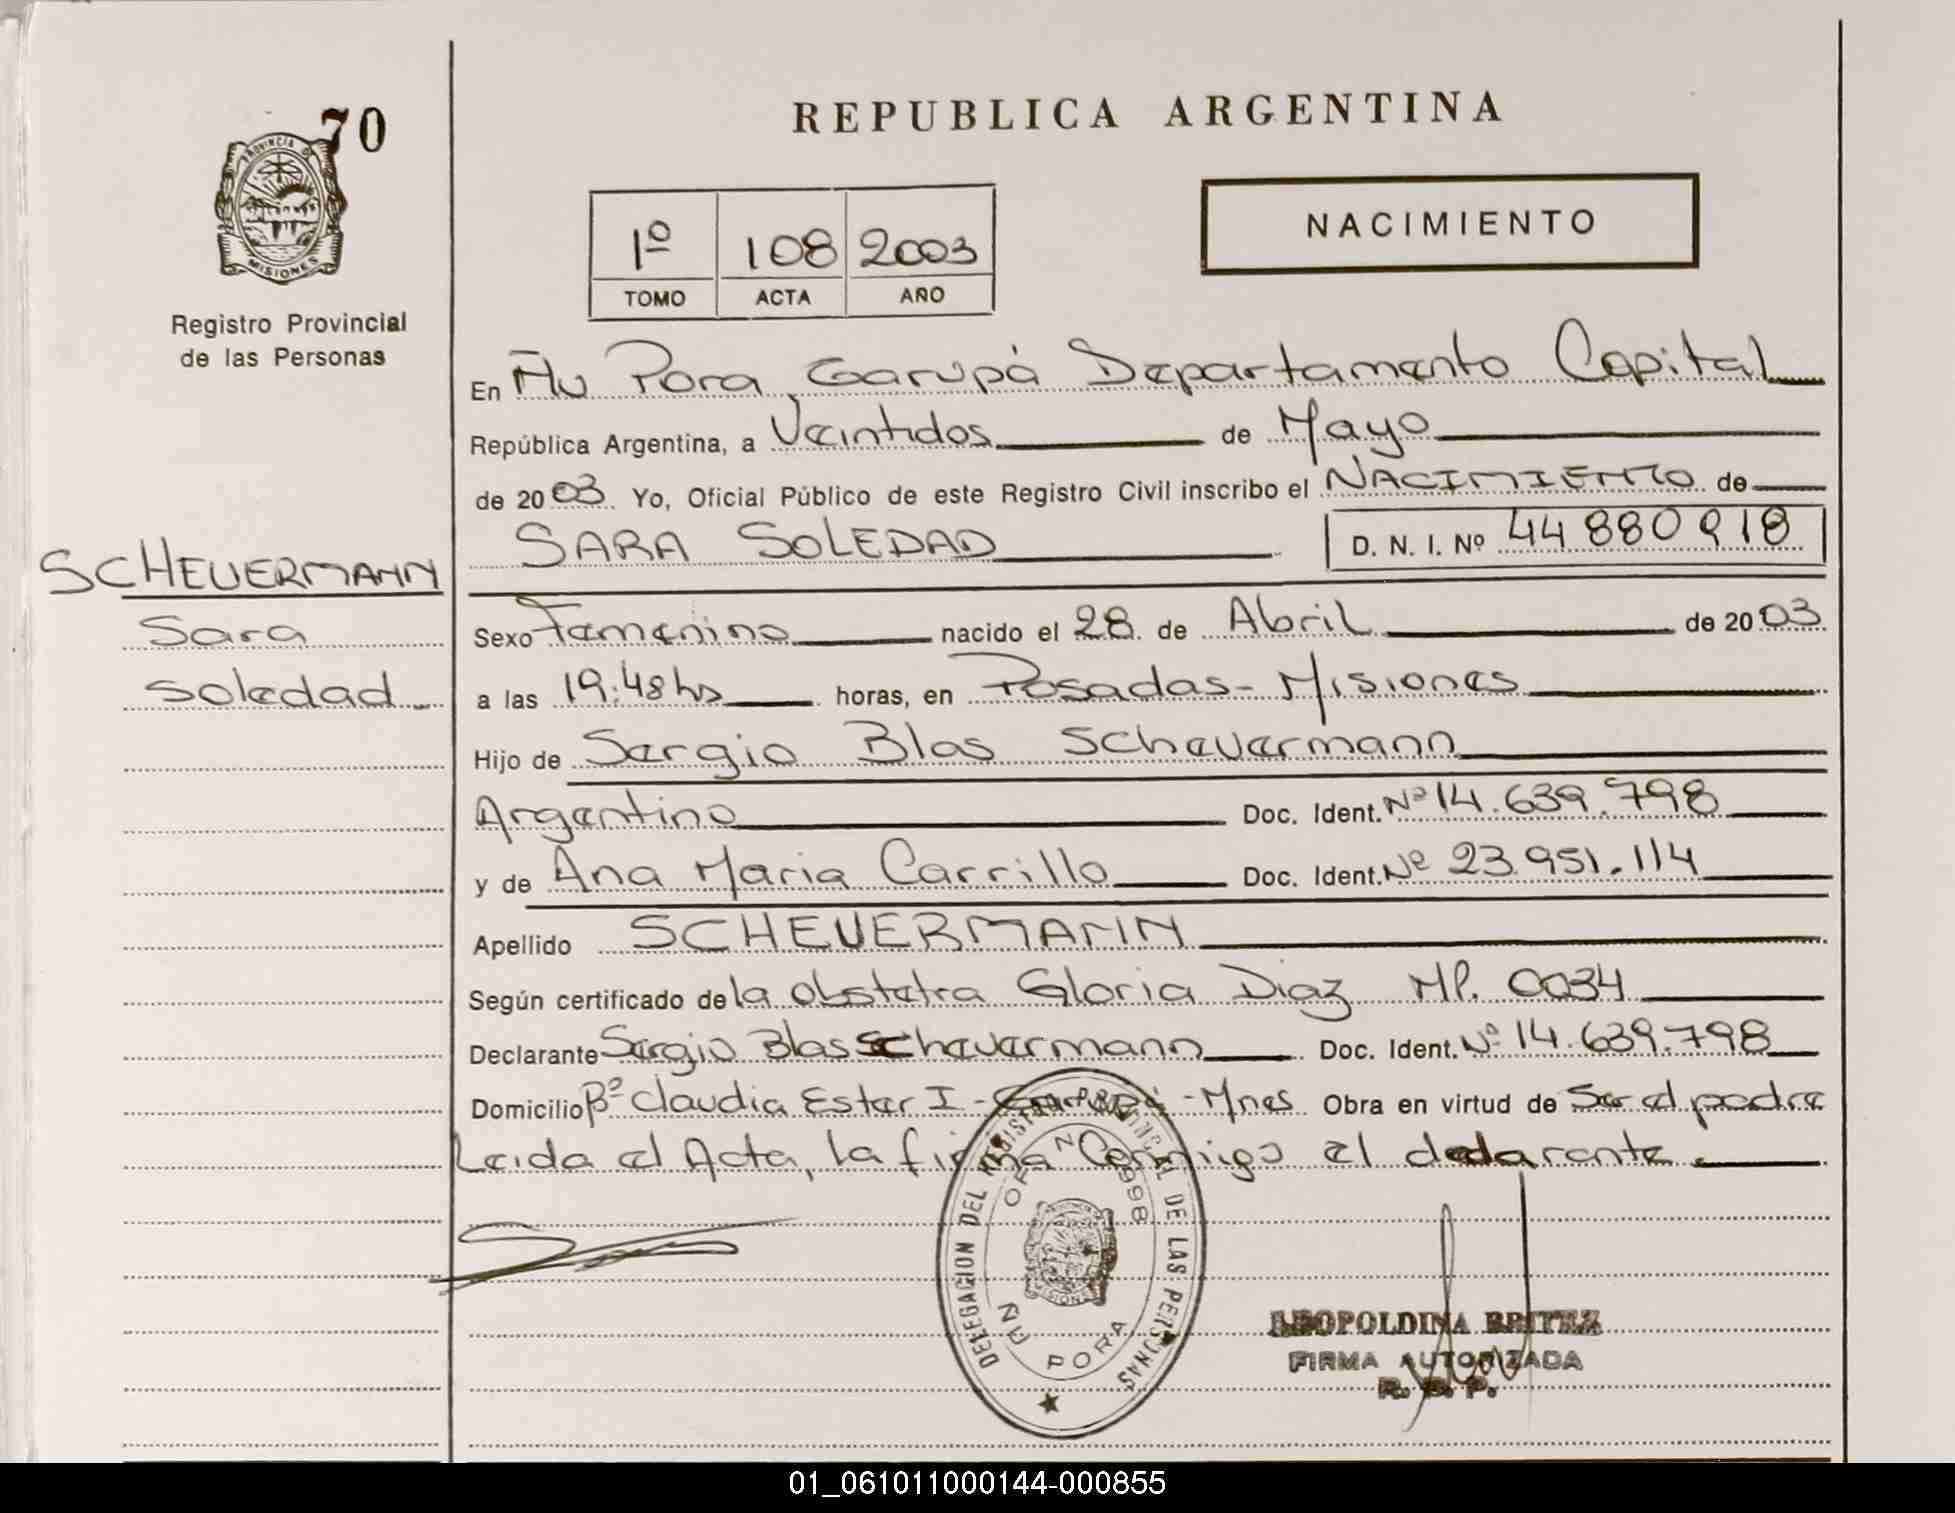 70
PROVINCIA DE
MISIONES
Registro Provincial
de las Personas
SCHEUERMANN
Sara
Soledad
REPUBLICA ARGENTINA
1º 108 2003
TOMO ACTA AÑO
NACIMIENTO
En Ñu Pora, Garupá Departamento Capital
República Argentina, a Veintidos de Mayo
de 2003 Yo, Oficial Público de este Registro Civil inscribo el NACIMIENTO de
SARA SOLEDAD D. N. I. Nº 44 880 918
Sexo Femenino nacido el 28 de Abril de 2003
a las 19:48 hs horas, en Posadas - Misiones
Hijo de Sergio Blas Scheuermann
Argentino Doc. Ident. Nº 14.639.798
y de Ana Maria Carrillo Doc. Ident. Nº 23.951.114
Apellido SCHEUERMANN
Según certificado de la obstetra Gloria Diaz MP. 0034
Declarante Sergio Blas Scheuermann Doc. Ident. Nº 14.639.798
Domicilio Bº Claudia Ester I - Garupá - Mnes Obra en virtud de Ser el padre
Leida el Acta, la firma Conmigo el declarante.
DELEGACION DEL REGISTRO PROVINCIAL DE LAS PERSONAS
ÑU PORA
LEOPOLDINA BRITEZ
FIRMA AUTORIZADA
R. P. P.
01_061011000144-000855